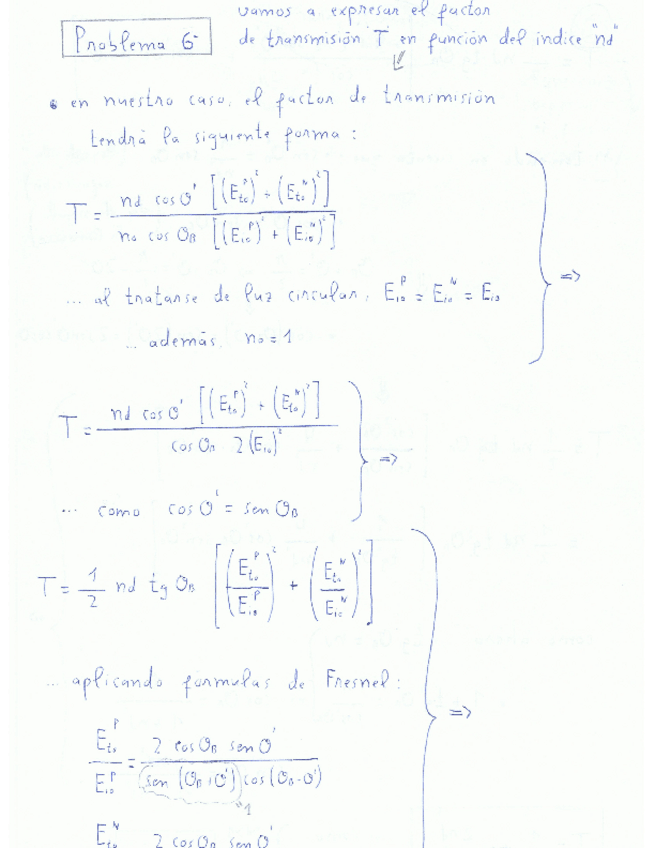 vamos a expresar el factor
Problema 6 de transmisión "T" en función del índice "nd"
• en nuestro caso, el factor de transmisión
tendrá la siguiente forma:
T = nd cos θ' [(E_to^P)² + (E_to^N)²] / no cos θB [(E_io^P)² + (E_io^N)²]
... al tratarse de luz circular, E_io^P = E_io^N = E_io
... además, no = 1
=>
T = nd cos θ' [(E_to^P)² + (E_to^N)²] / cos θB 2 (E_io)²
=>
... como cos θ' = sen θB
T = 1/2 nd tg θB [(E_to^P / E_io^P)² + (E_to^N / E_io^N)²]
... aplicando fórmulas de Fresnel:
=>
E_to^P / E_io^P = 2 cos θB sen θ' / sen (θB + θ') cos (θB - θ')
1
E_to^N 2 cos θB sen θ'